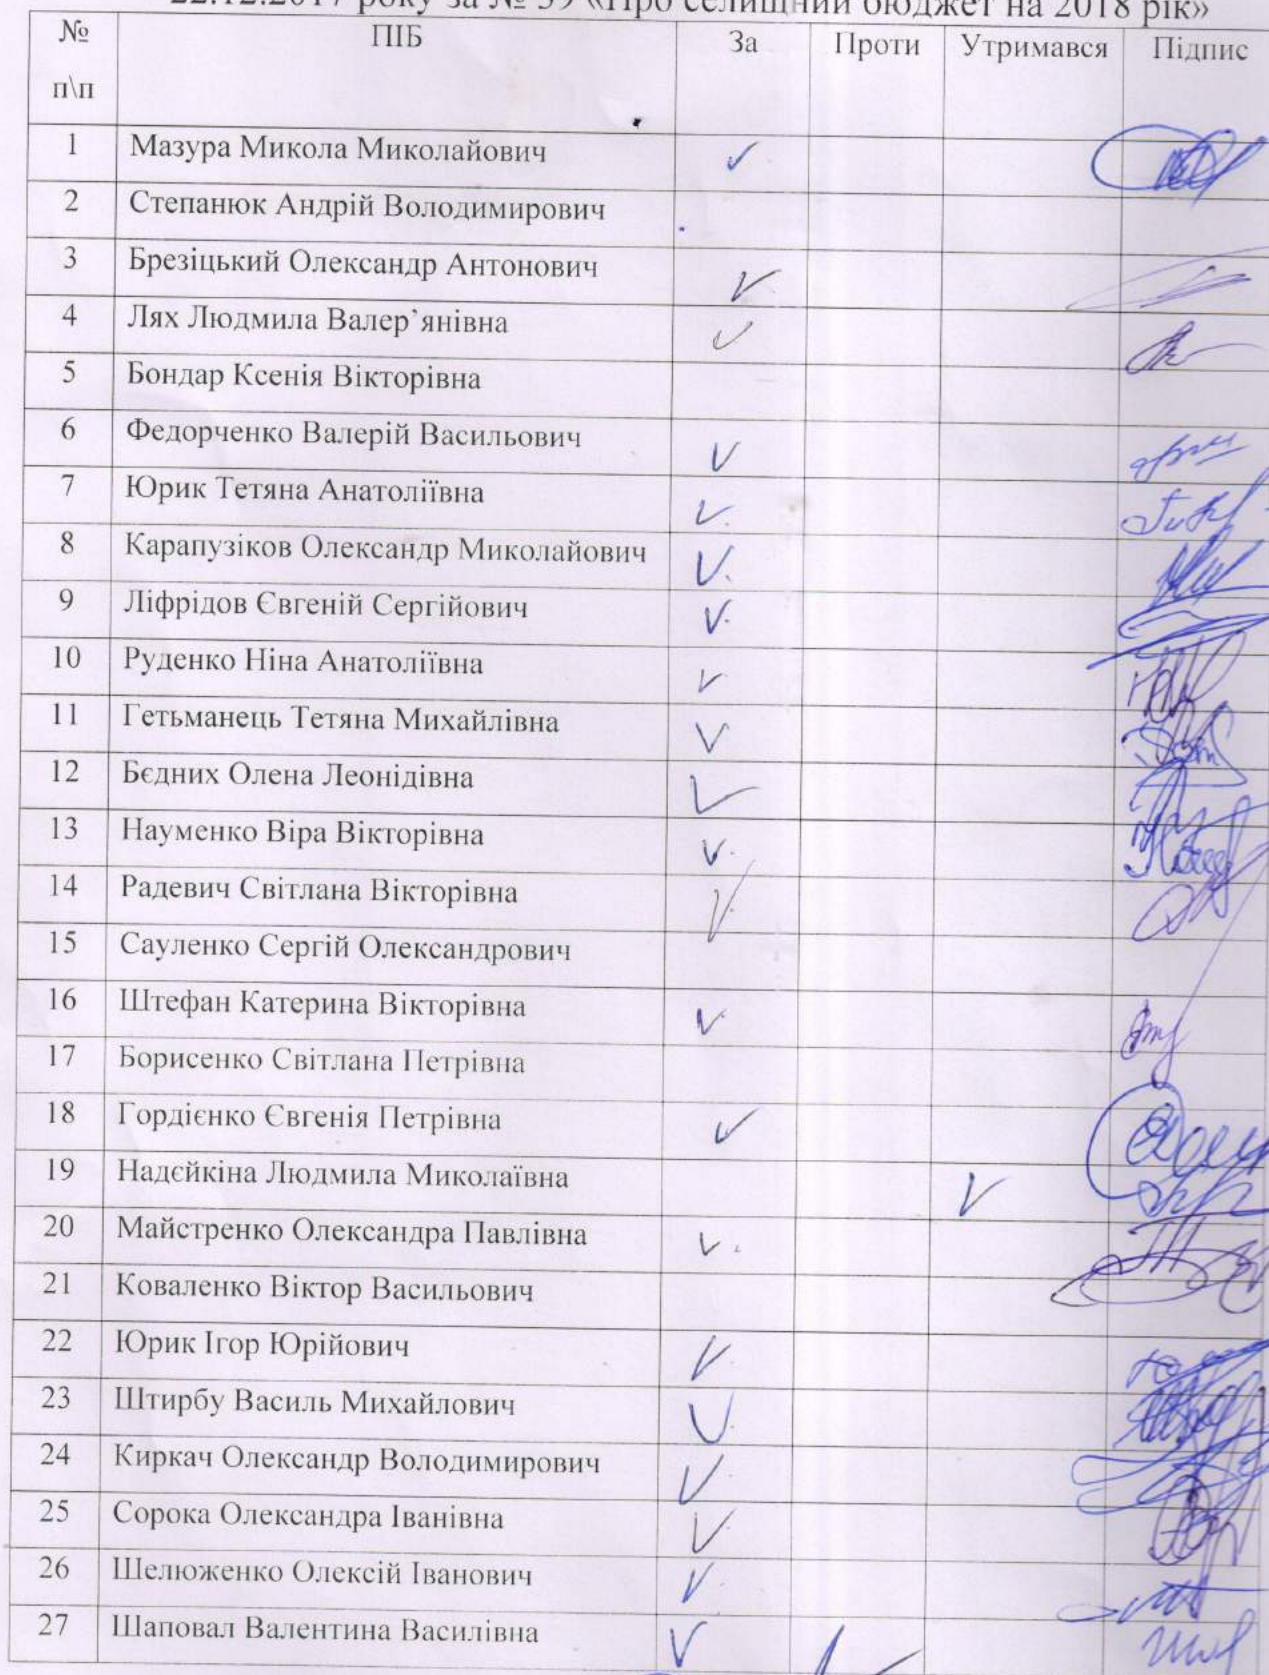 22.12.2017 року за № 39 «Про селищний бюджет на 2018 рік»
№ п\п ПІБ За Проти Утримався Підпис
1 Мазура Микола Миколайович
2 Степанюк Андрій Володимирович
3 Брезіцький Олександр Антонович
4 Лях Людмила Валер’янівна
5 Бондар Ксенія Вікторівна
6 Федорченко Валерій Васильович
7 Юрик Тетяна Анатоліївна
8 Карапузіков Олександр Миколайович
9 Ліфрідов Євгеній Сергійович
10 Руденко Ніна Анатоліївна
11 Гетьманець Тетяна Михайлівна
12 Бєдних Олена Леонідівна
13 Науменко Віра Вікторівна
14 Радевич Світлана Вікторівна
15 Сауленко Сергій Олександрович
16 Штефан Катерина Вікторівна
17 Борисенко Світлана Петрівна
18 Гордієнко Євгенія Петрівна
19 Надєйкіна Людмила Миколаївна
20 Майстренко Олександра Павлівна
21 Коваленко Віктор Васильович
22 Юрик Ігор Юрійович
23 Штирбу Василь Михайлович
24 Киркач Олександр Володимирович
25 Сорока Олександра Іванівна
26 Шелюженко Олексій Іванович
27 Шаповал Валентина Василівна